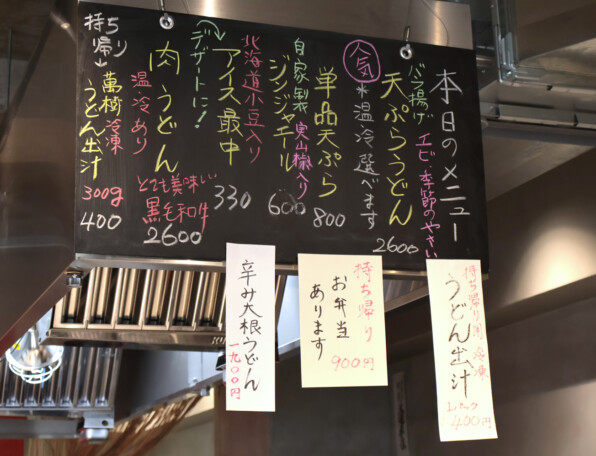 本日のメニュー
エビ・季節のやさい
バラ揚げ
天ぷらうどん
2600
人気
*温、冷 選べます
単品天ぷら
800
自家製
実山椒入り
ジンジャエール
600
北海道小豆入り
アイス最中
330
デザートに!
肉うどん
温・冷あり
とても美味しい
黒毛和牛
2600
持ち帰り
萬樹 冷凍
うどん出汁
300g
400
持ち帰り用 冷凍
うどん出汁
400円
持ち帰り
お弁当
あります
900円
辛み大根うどん
一九〇〇円